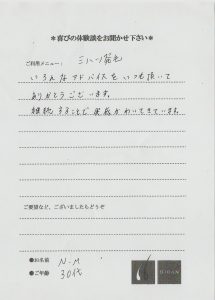 ＊喜びの体験談をお聞かせ下さい＊
ご利用メニュー：
いろんなアドバイスをいつも頂いて
ありがとうございます。
継続することで実感がわいてきています。
ご要望など、ございましたらどうぞ
●お名前 N・M
●ご年齢 30代